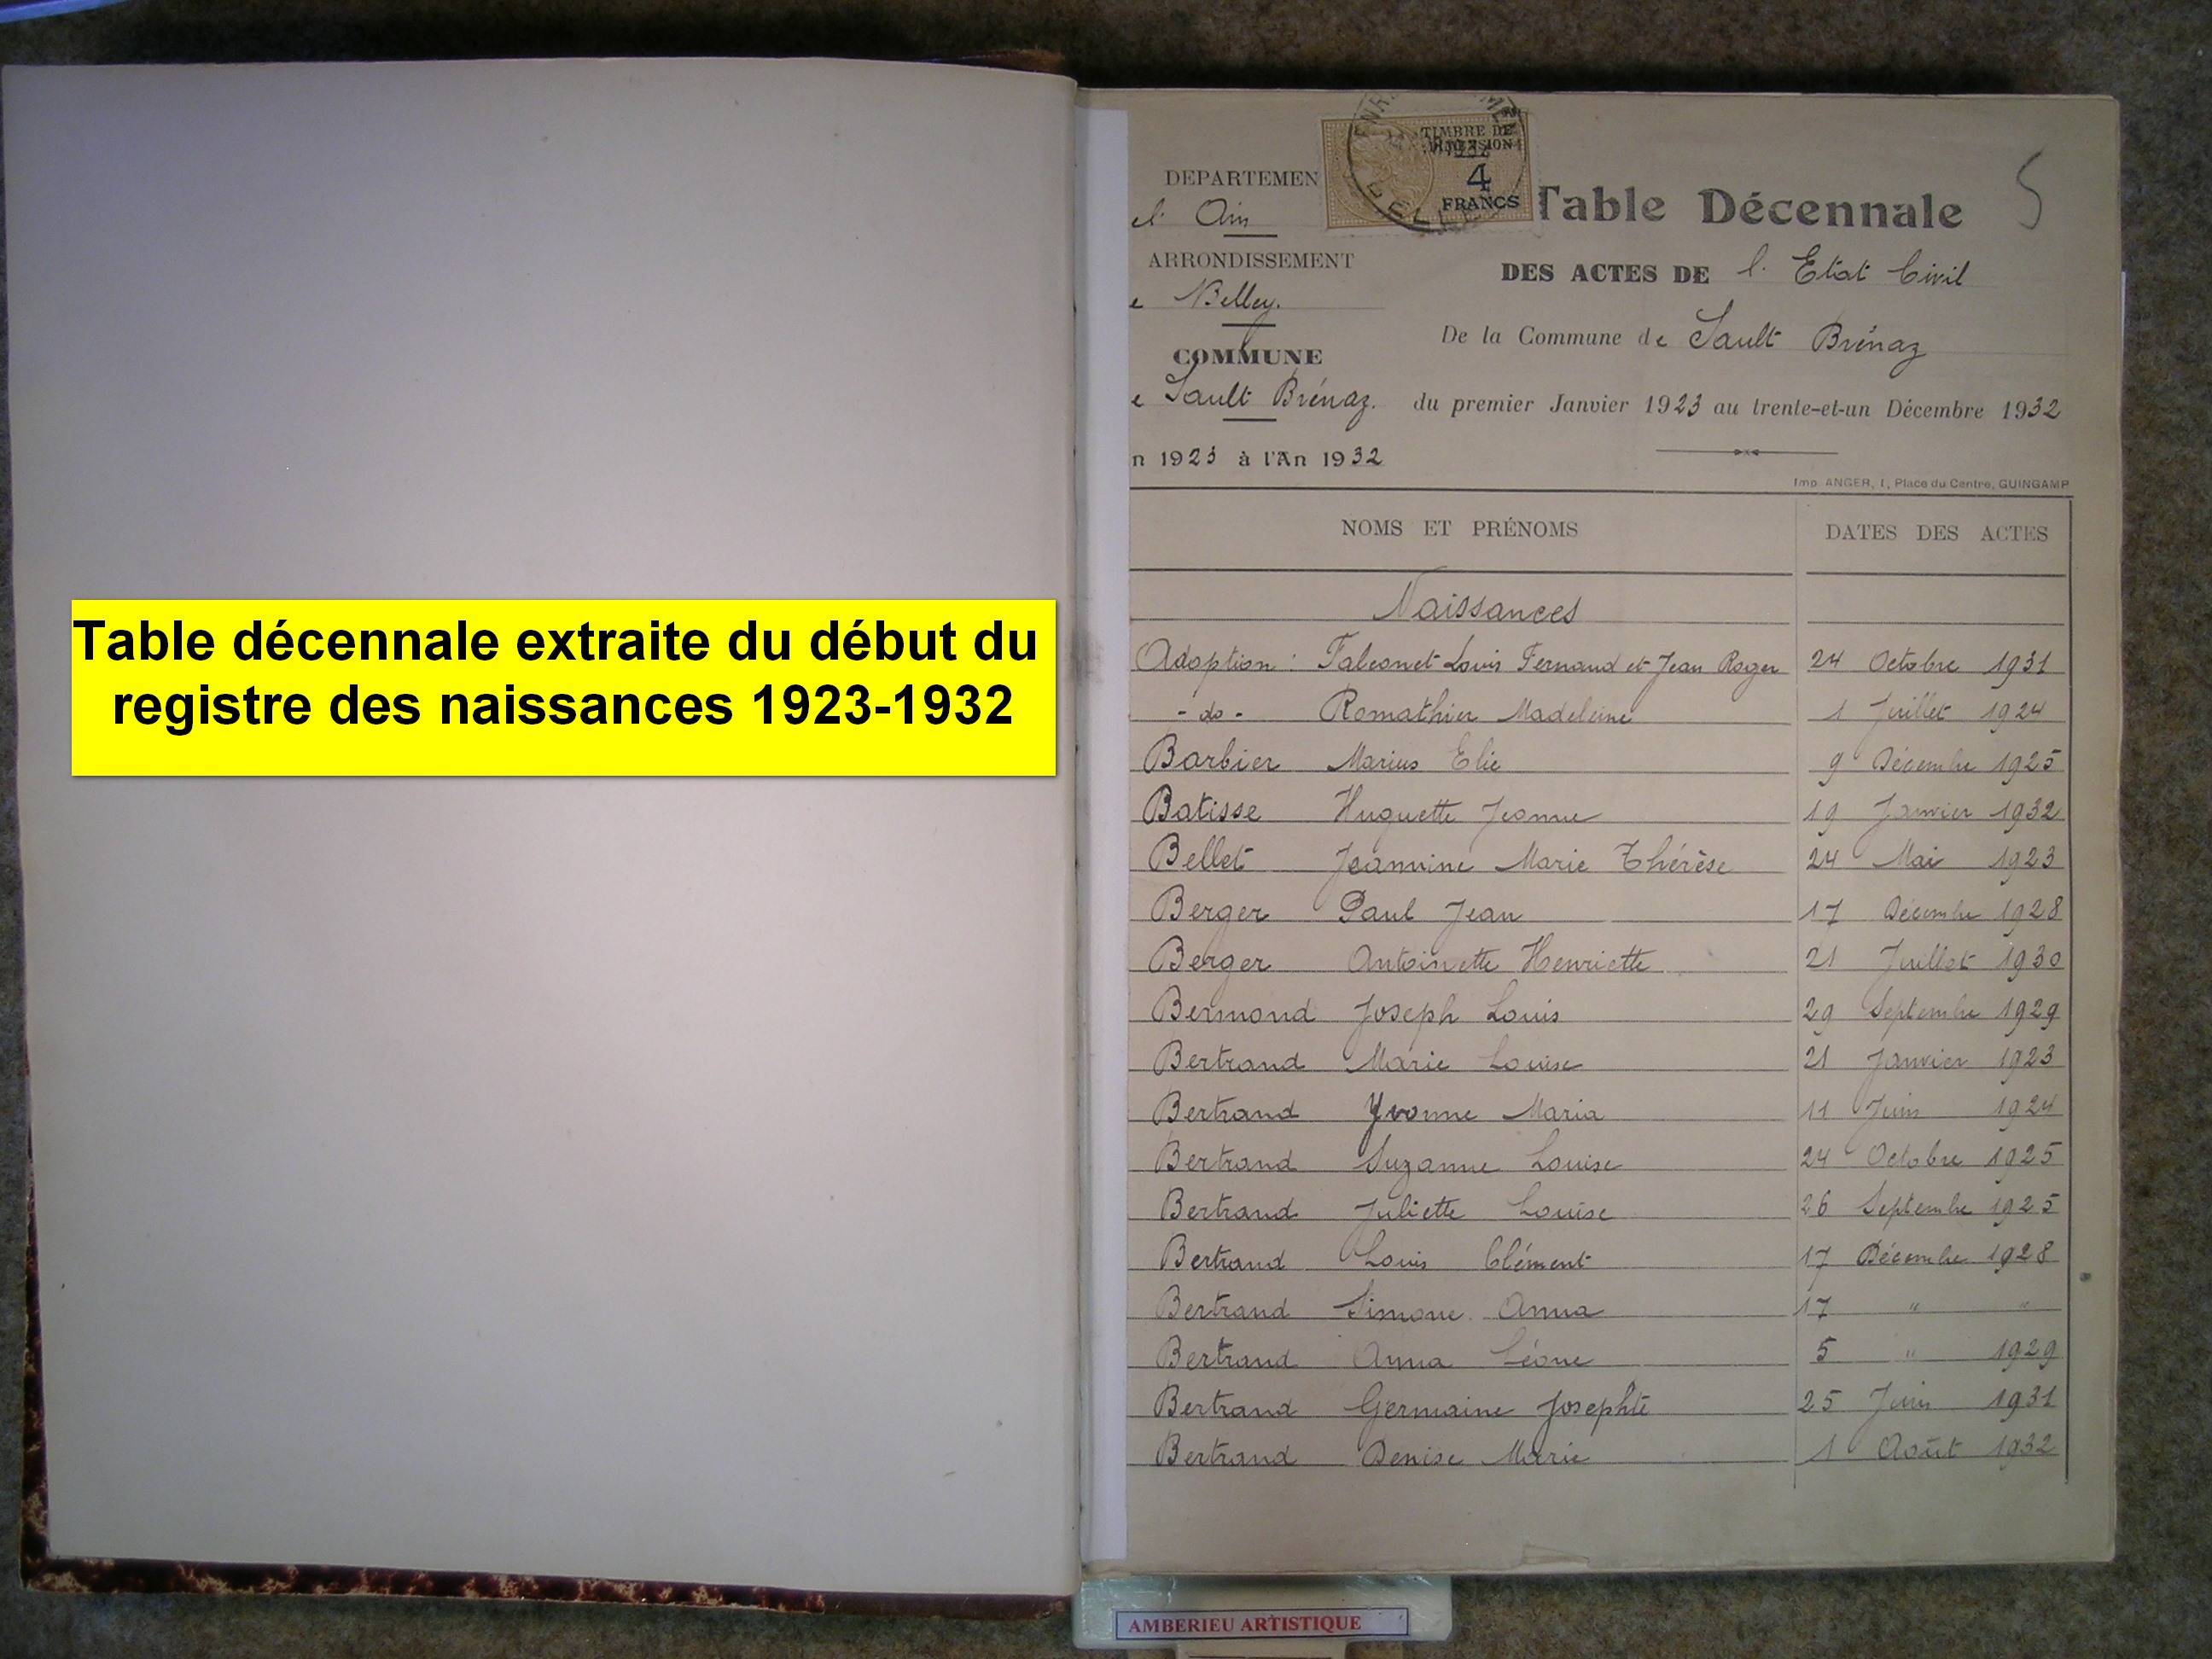 Table décennale extraite du début du
registre des naissances 1923-1932
TIMBRE DE
DIMENSION
4
FRANCS
DEPARTEMEN
l' Ain
ARRONDISSEMENT
e Belley.
COMMUNE
e Sault Brénaz.
n 1923 à l'An 1932
Table Décennale
5
DES ACTES DE l' Etat Civil
De la Commune de Sault Brénaz
du premier Janvier 1923 au trente-et-un Décembre 1932
Imp. ANGER, 1, Place du Centre, GUINGAMP
NOMS ET PRÉNOMS DATES DES ACTES
Naissances
Adoption : Falconnet Louis Fernand et Jean Roger 24 Octobre 1931
- do - Romathier Madeleine 1 Juillet 1924
Barbier Marius Elie 9 Décembre 1925
Batisse Huguette Jeanne 19 Janvier 1932
Bellet Jeannine Marie Thérèse 24 Mai 1923
Berger Paul Jean 17 Décembre 1928
Berger Antoinette Henriette 21 Juillet 1930
Bermond Joseph Louis 29 Septembre 1929
Bertrand Marie Louise 21 Janvier 1923
Bertrand Yvonne Maria 11 Juin 1924
Bertrand Suzanne Louise 24 Octobre 1925
Bertrand Juliette Louise 26 Septembre 1925
Bertrand Louis Clément 17 Décembre 1928
Bertrand Simone Anna 17 " "
Bertrand Anna Léone 5 " 1929
Bertrand Germaine Josephte 25 Juin 1931
Bertrand Denise Marie 1 Août 1932
AMBERIEU ARTISTIQUE